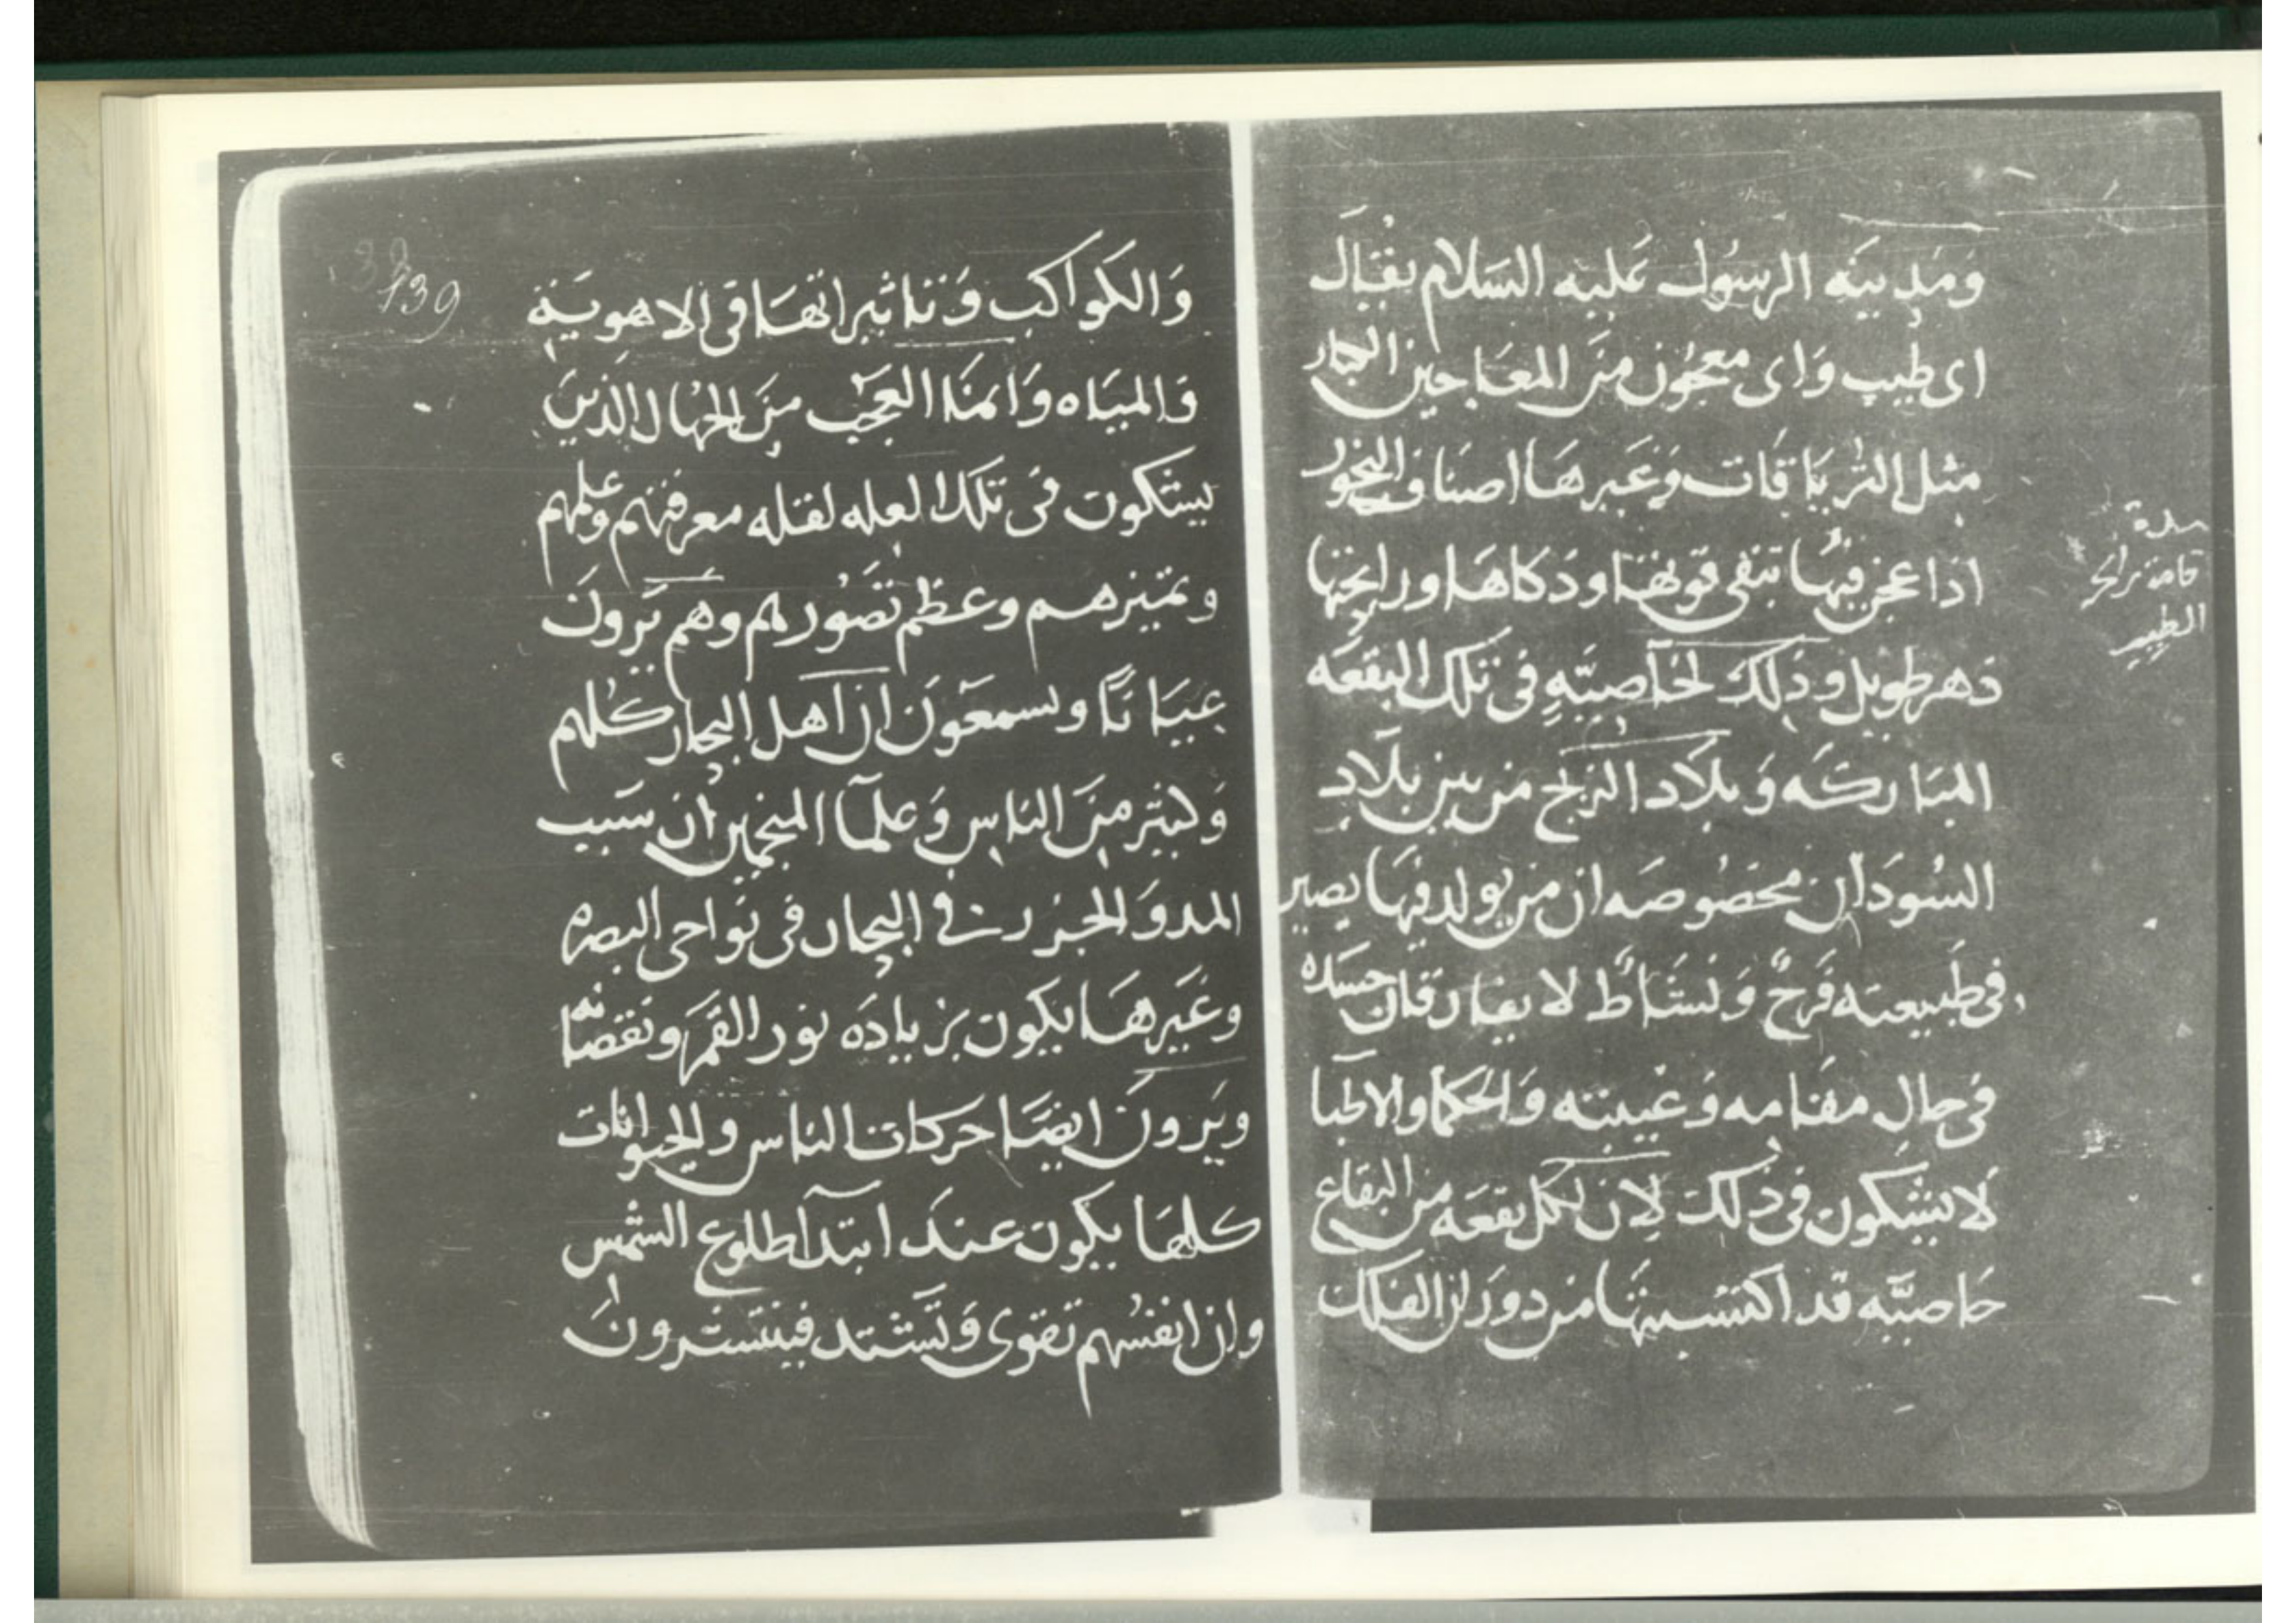 وَمَدِينَه الرسُول عَليه السَلام يقَال
اى طيب وَاى معجُون منَ المعَاجين الكبار
مثل الترياقات وَغَيرهَا اصنَاف البخور
اذا عجن فيهَا تبقى قوتهَا وذكاهَا ورايحتها
دَهر طويل وذلِك لخآصيَّهٍ فى تلك البقعَه
المبَاركَه وَبلَاد الزنج من بين بلَادِ
السُودَان مخصُوصَه ان من يولد فيهَا يصير
فى طَبيعته فَرحٌ وَنشَاطٌ لا يفارقان جسَده
فى حالِ مقَامِه وَغيبته وَالحكمَا والاطبا
لَا يشكون فى ذلك لِان لكل بقعَه من البقاع
خَاصيَّه قد اكتسَبتهَا من دورَان الفلك
سده
قامة
الطيب
139
وَالكوَاكب وَتاثيراتهَا فى الاهويَة
وَالميَاه وَانمَا العَجَب مِنَ الجهَال الذِينَ
يشكون فى تلك العله لقله معرفتهم وعلمهم
وتمييزهم وعظم تصَورهم وهم يَرونَ
عِيَانًا ويسمعَونَ ان اَهل البحار كلهم
وَكثير منَ الناسِ وَعلمَآ المنجمين ان سَبب
المد وَالجزر فى البحار فى نَواحى البصره
وغَيرهَا يكون بزيادَه نور القَمَر ونقصَانه
ويَرونَ ايضًا حَركات الناس والحيوانات
كلهَا يكون عندَ ابتدآ طلوع الشمس
وان انفسُهم تقوى وَتشتد فينتشرونَ